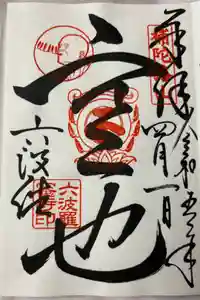 奉拝
令和五年
四月一日
空也
六波羅
六波羅
蜜寺印